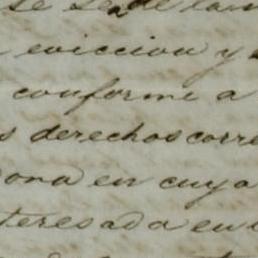 se se de la
eviccion y
conforme a
s derechos corre
ona en cuya
teresada en